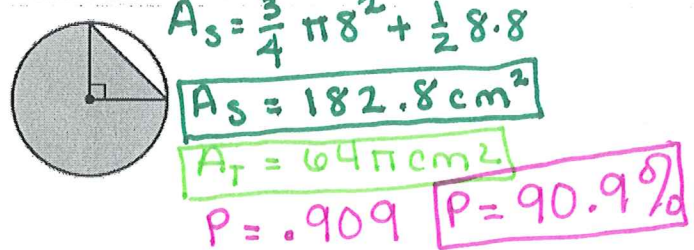 A_S = 3/4 π8² + 1/2 8·8
A_S = 182.8 cm²
A_T = 64π cm²
P = .909 P = 90.9%